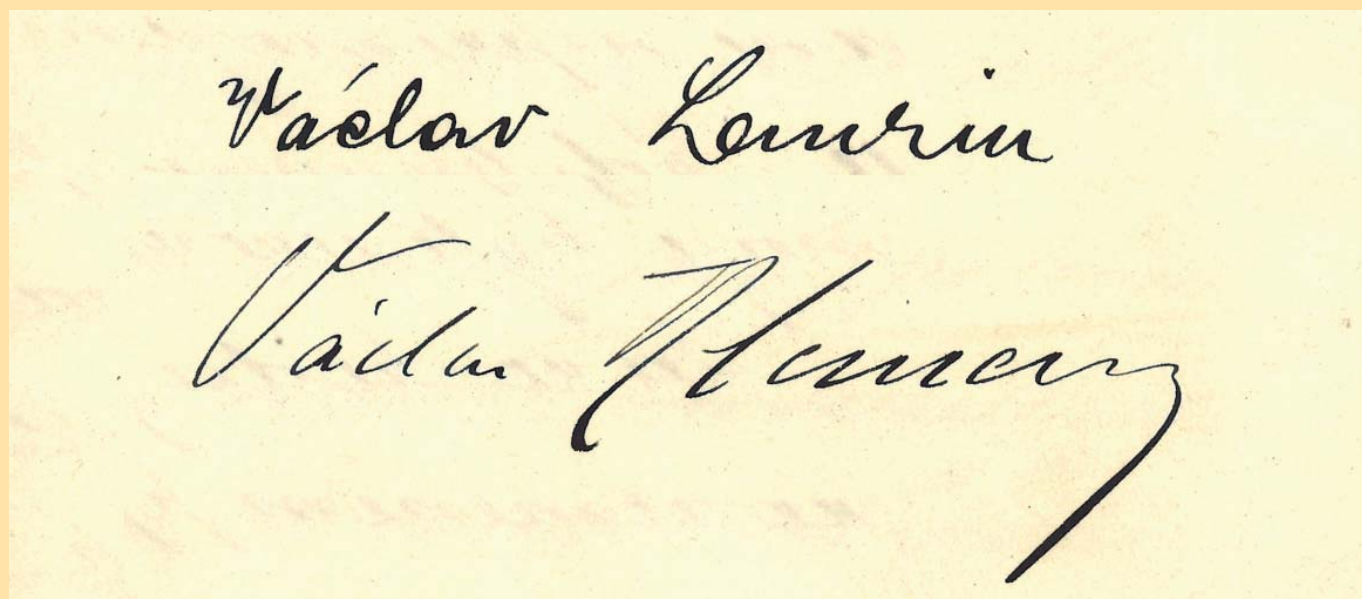 Václav Laurin
Václav Klement